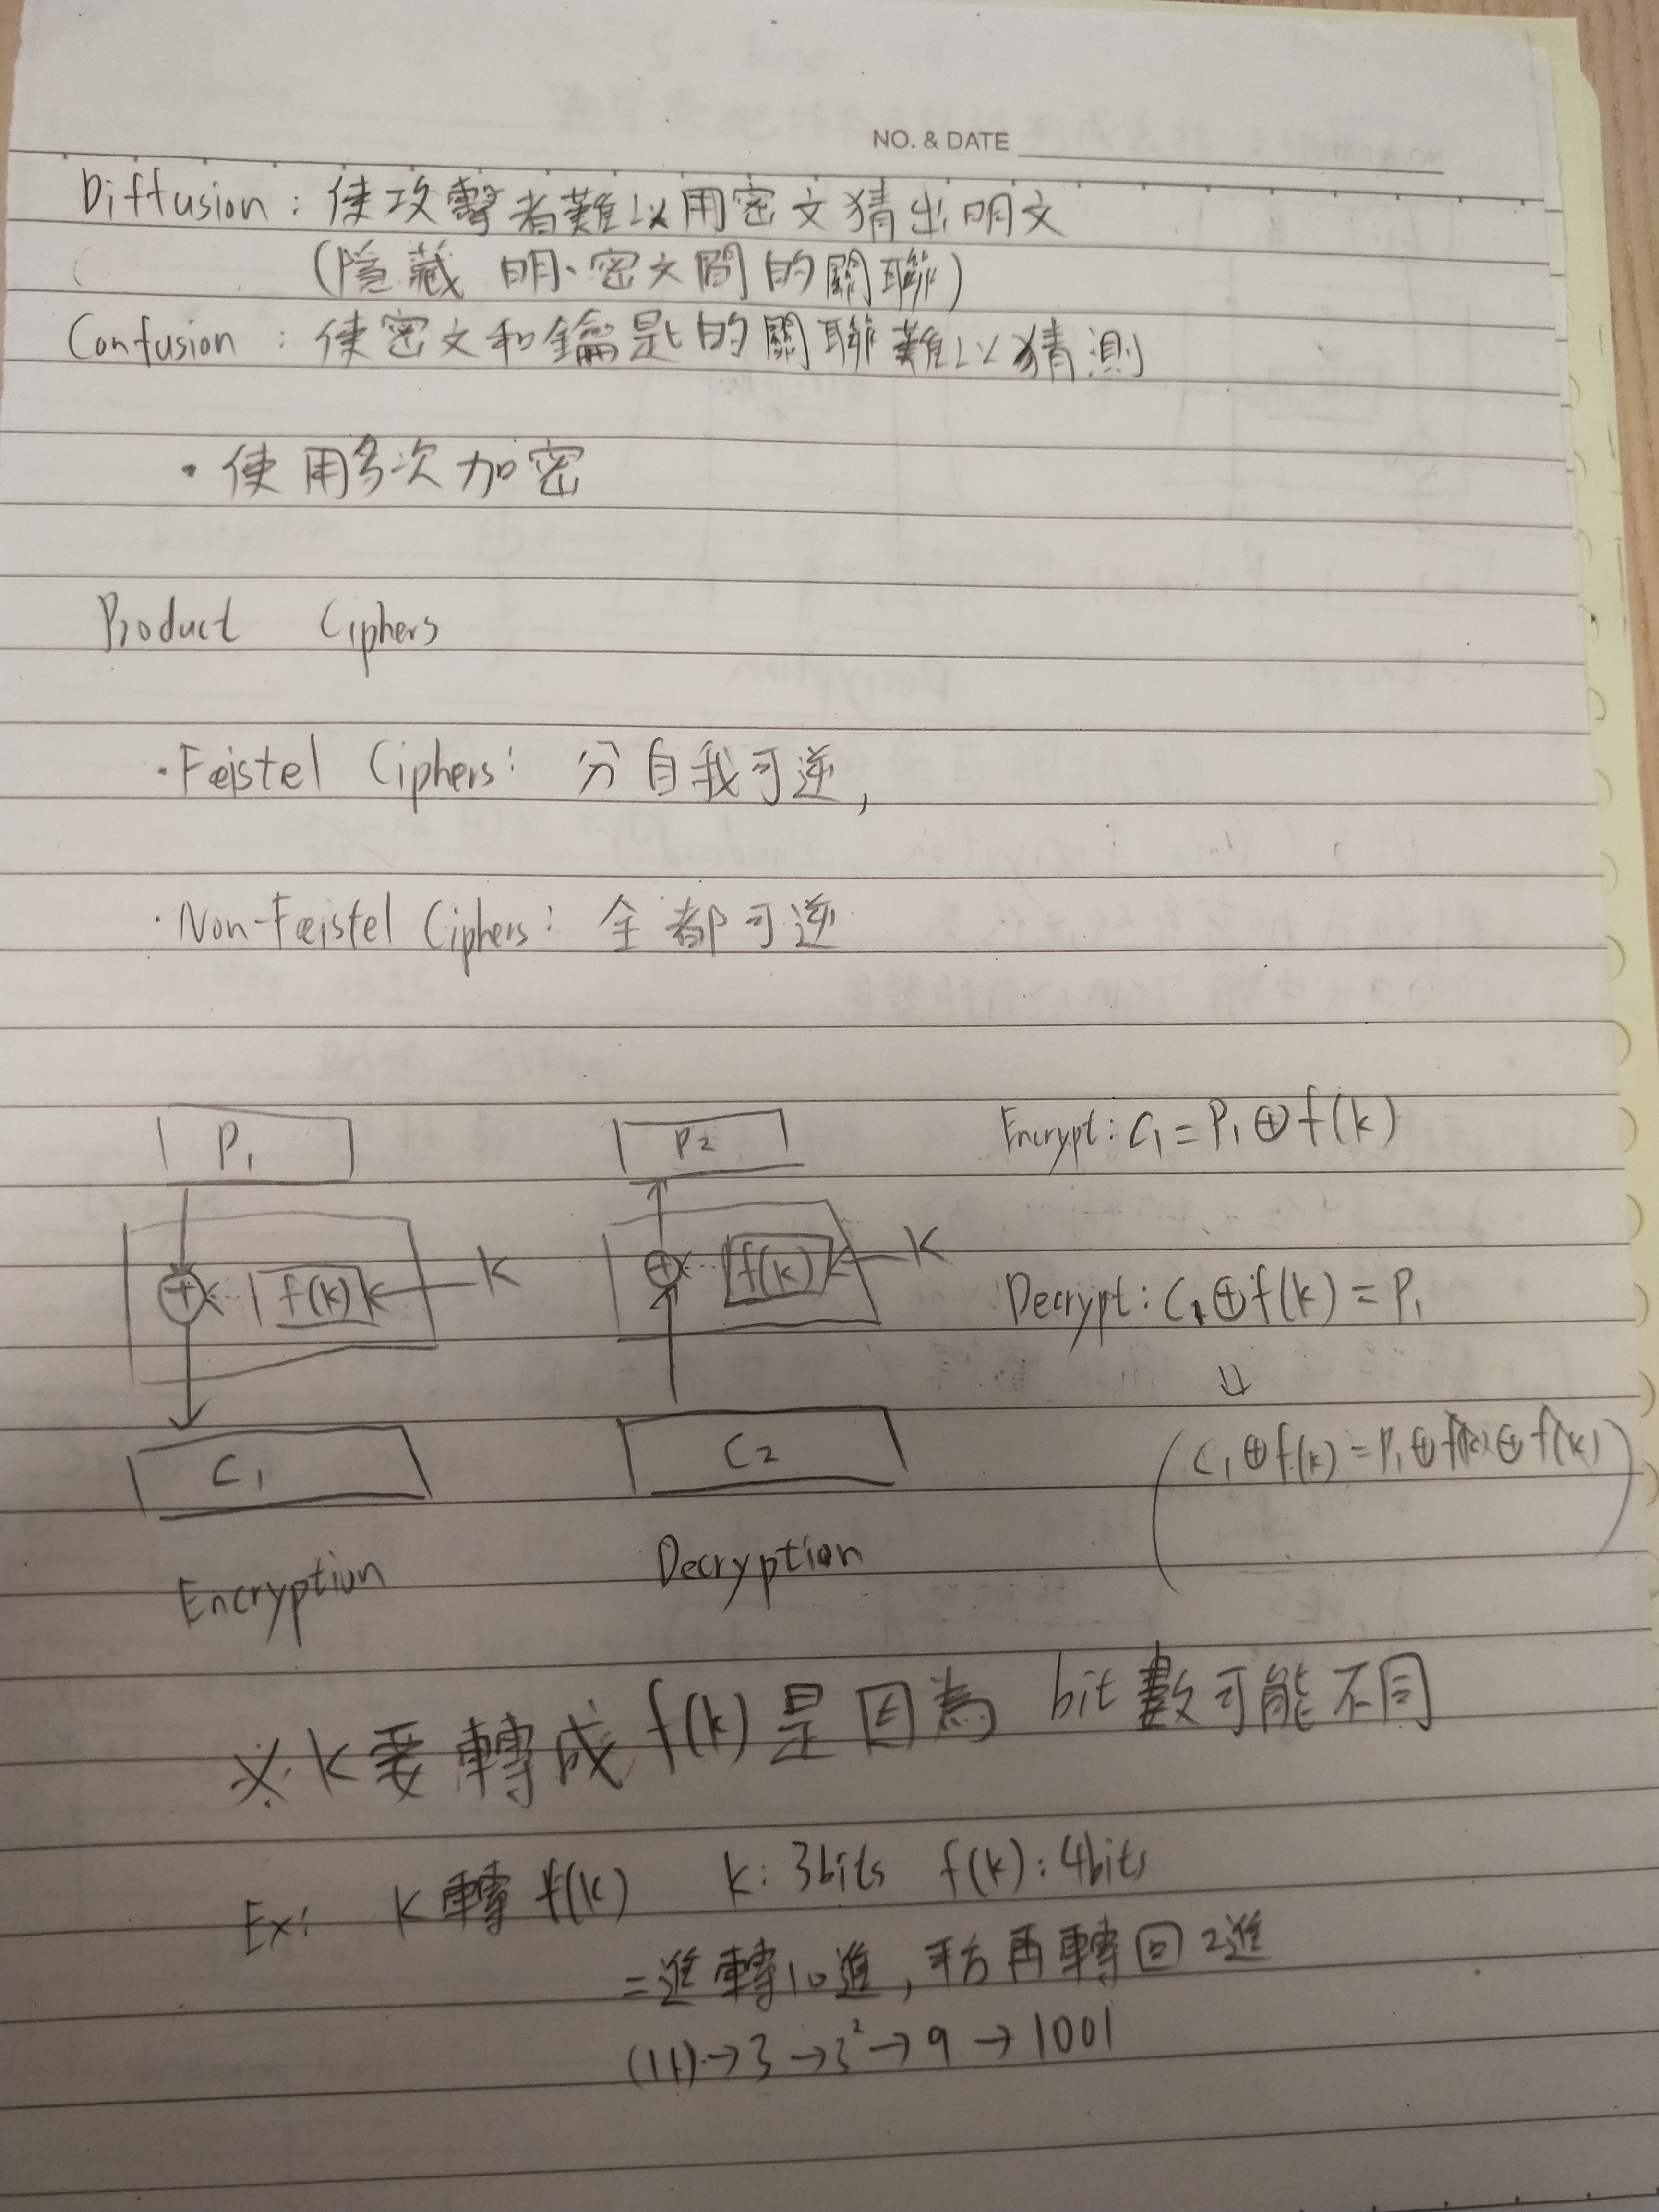 NO. & DATE
Diffusion : 使攻擊者難以用密文猜出明文
(隱藏 明、密文間的關聯)
Confusion : 使密文和鑰匙的關聯難以猜測
・使用多次加密
Product Ciphers
・Feistel Ciphers: 分自我可逆,
・Non-Feistel Ciphers: 全都可逆
P₁ P₂ Encrypt: C₁ = P₁ ⊕ f(k)
⊕ f(k) K ⊕ f(k) K
Decrypt: C₁ ⊕ f(k) = P₁
⇓
C₁ C₂ (C₁ ⊕ f(k) = P₁ ⊕ f(k) ⊕ f(k))
Encryption Decryption
※ K要轉成 f(k) 是因為 bit數可能不同
Ex: K轉 f(k) k: 3bits f(k): 4bits
二進轉10進, 平方再轉回2進
(11)→3→3²→9→1001